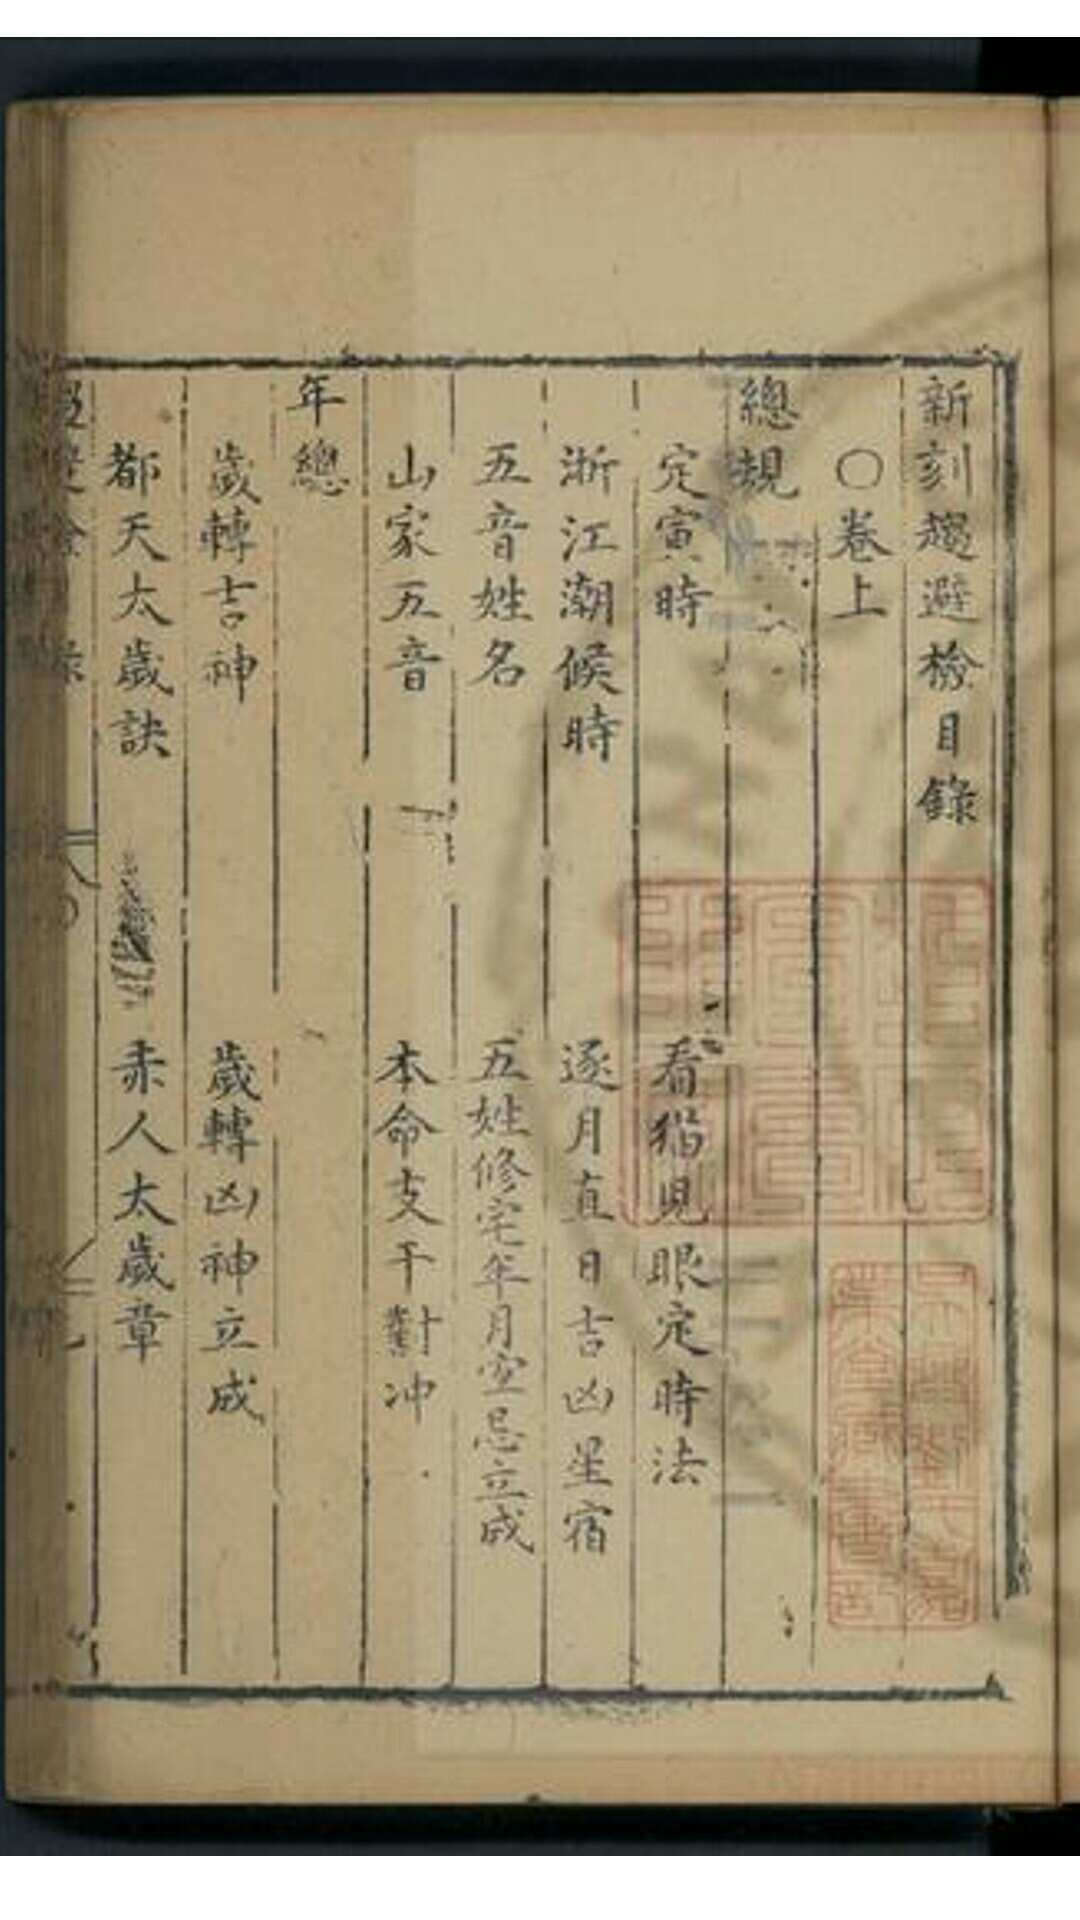 新刻趨避檢目錄
○卷上
總規
定寅時 看猫兒眼定時法
浙江潮候時 逐月直日吉凶星宿
五音姓名 五姓修宅年月空忌立成
山家五音 本命支干對冲
年總
歲轉吉神 歲轉凶神立成
都天太歲訣 赤人太歲章